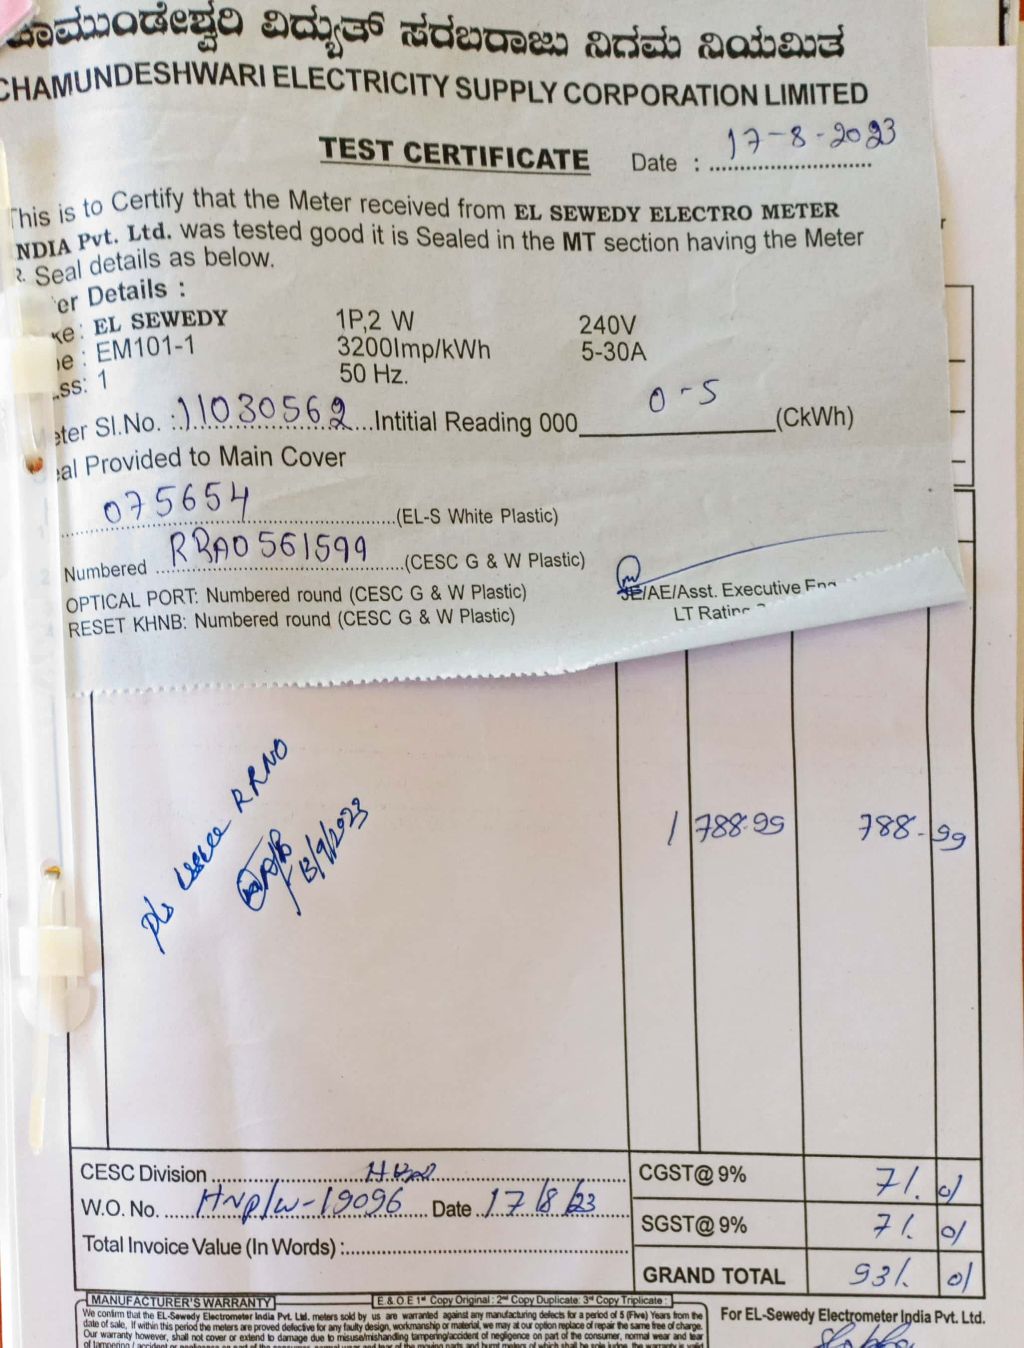 ಚಾಮುಂಡೇಶ್ವರಿ ವಿದ್ಯುತ್ ಸರಬರಾಜು ನಿಗಮ ನಿಯಮಿತ
CHAMUNDESHWARI ELECTRICITY SUPPLY CORPORATION LIMITED
TEST CERTIFICATE Date : 17-8-2023
This is to Certify that the Meter received from EL SEWEDY ELECTRO METER
INDIA Pvt. Ltd. was tested good it is Sealed in the MT section having the Meter
Seal details as below.
er Details :
ke: EL SEWEDY 1P,2 W 240V
e : EM101-1 3200Imp/kWh 5-30A
ss: 1 50 Hz.
eter Sl.No. : 11030562 Intitial Reading 000 0-5 (CkWh)
eal Provided to Main Cover
075654 (EL-S White Plastic)
Numbered RBA0561599 (CESC G & W Plastic)
OPTICAL PORT: Numbered round (CESC G & W Plastic)
RESET KHNB: Numbered round (CESC G & W Plastic)
JE/AE/Asst. Executive Eng
LT Rating
1 788-99 788-99
pls issue RRNO
13/9/2023
CESC Division
W.O. No. HNP/W-19096 Date 17/8/23
Total Invoice Value (In Words) :
CGST@ 9% 71. 01
SGST@ 9% 71. 01
GRAND TOTAL 931. 01
MANUFACTURER'S WARRANTY E.& O.E 1st Copy Original : 2nd Copy Duplicate: 3rd Copy Triplicate :
We confirm that the EL-Sewedy Electrometer India Pvt. Ltd. meters sold by us are warranted against any manufacturing defects for a period of 5 (Five) Years from the
date of sale, If within this period the meters are proved defective for any faulty design, workmanship or material, we may at our option replace of repair the same free of charge.
Our warranty however, shall not cover or extend to damage due to misuse/mishandling tampering/accident of negligence on part of the consumer, normal wear and tear
For EL-Sewedy Electrometer India Pvt. Ltd.